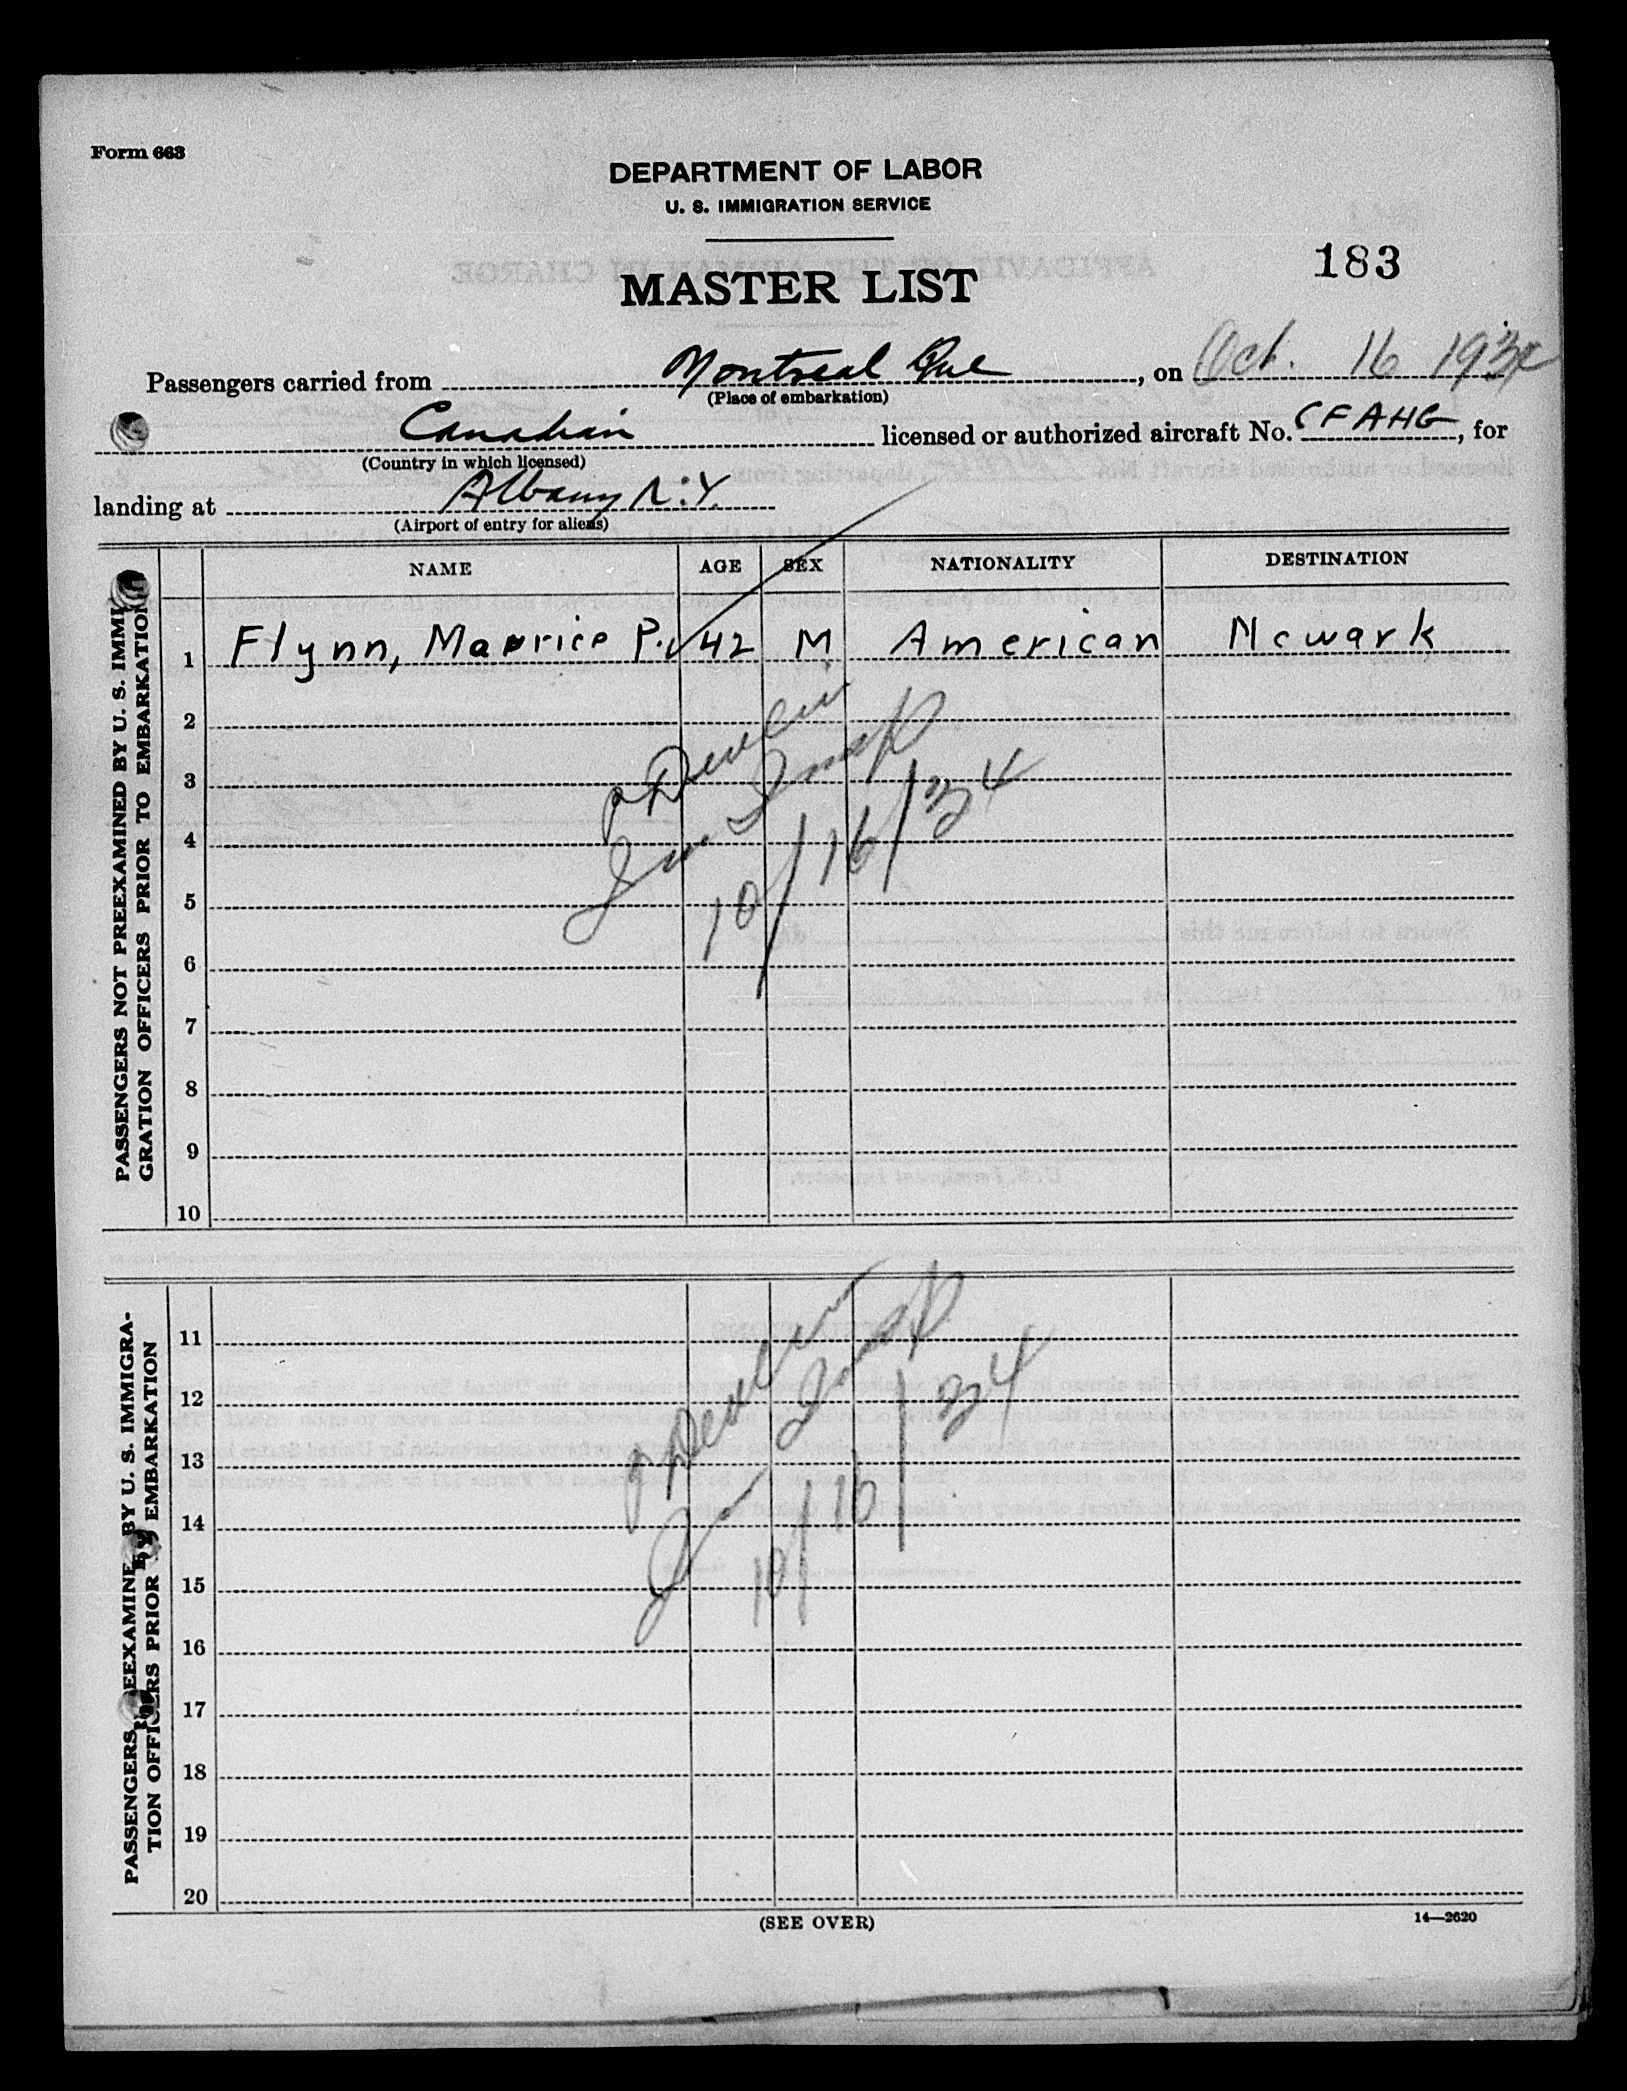 Form 663
DEPARTMENT OF LABOR
U. S. IMMIGRATION SERVICE
183
MASTER LIST
Passengers carried from Montreal Que, on Oct. 16 1934
(Place of embarkation)
Canadian licensed or authorized aircraft No. CFAHG, for
(Country in which licensed)
landing at Albany N.Y.
(Airport of entry for aliens)
NAME AGE SEX NATIONALITY DESTINATION
PASSENGERS NOT PREEXAMINED BY U. S. IMMI-
GRATION OFFICERS PRIOR TO EMBARKATION
1 Flynn, Maurice P. 42 M American Newark
2
3
4
5
6
7
8
9
10
P Devlin
Imm Insp
10/16/34
PASSENGERS PREEXAMINED BY U. S. IMMIGRA-
TION OFFICERS PRIOR TO EMBARKATION
11
12
13
14
15
16
17
18
19
20
P Devlin
Imm Insp
10/16/34
(SEE OVER)
14—2620